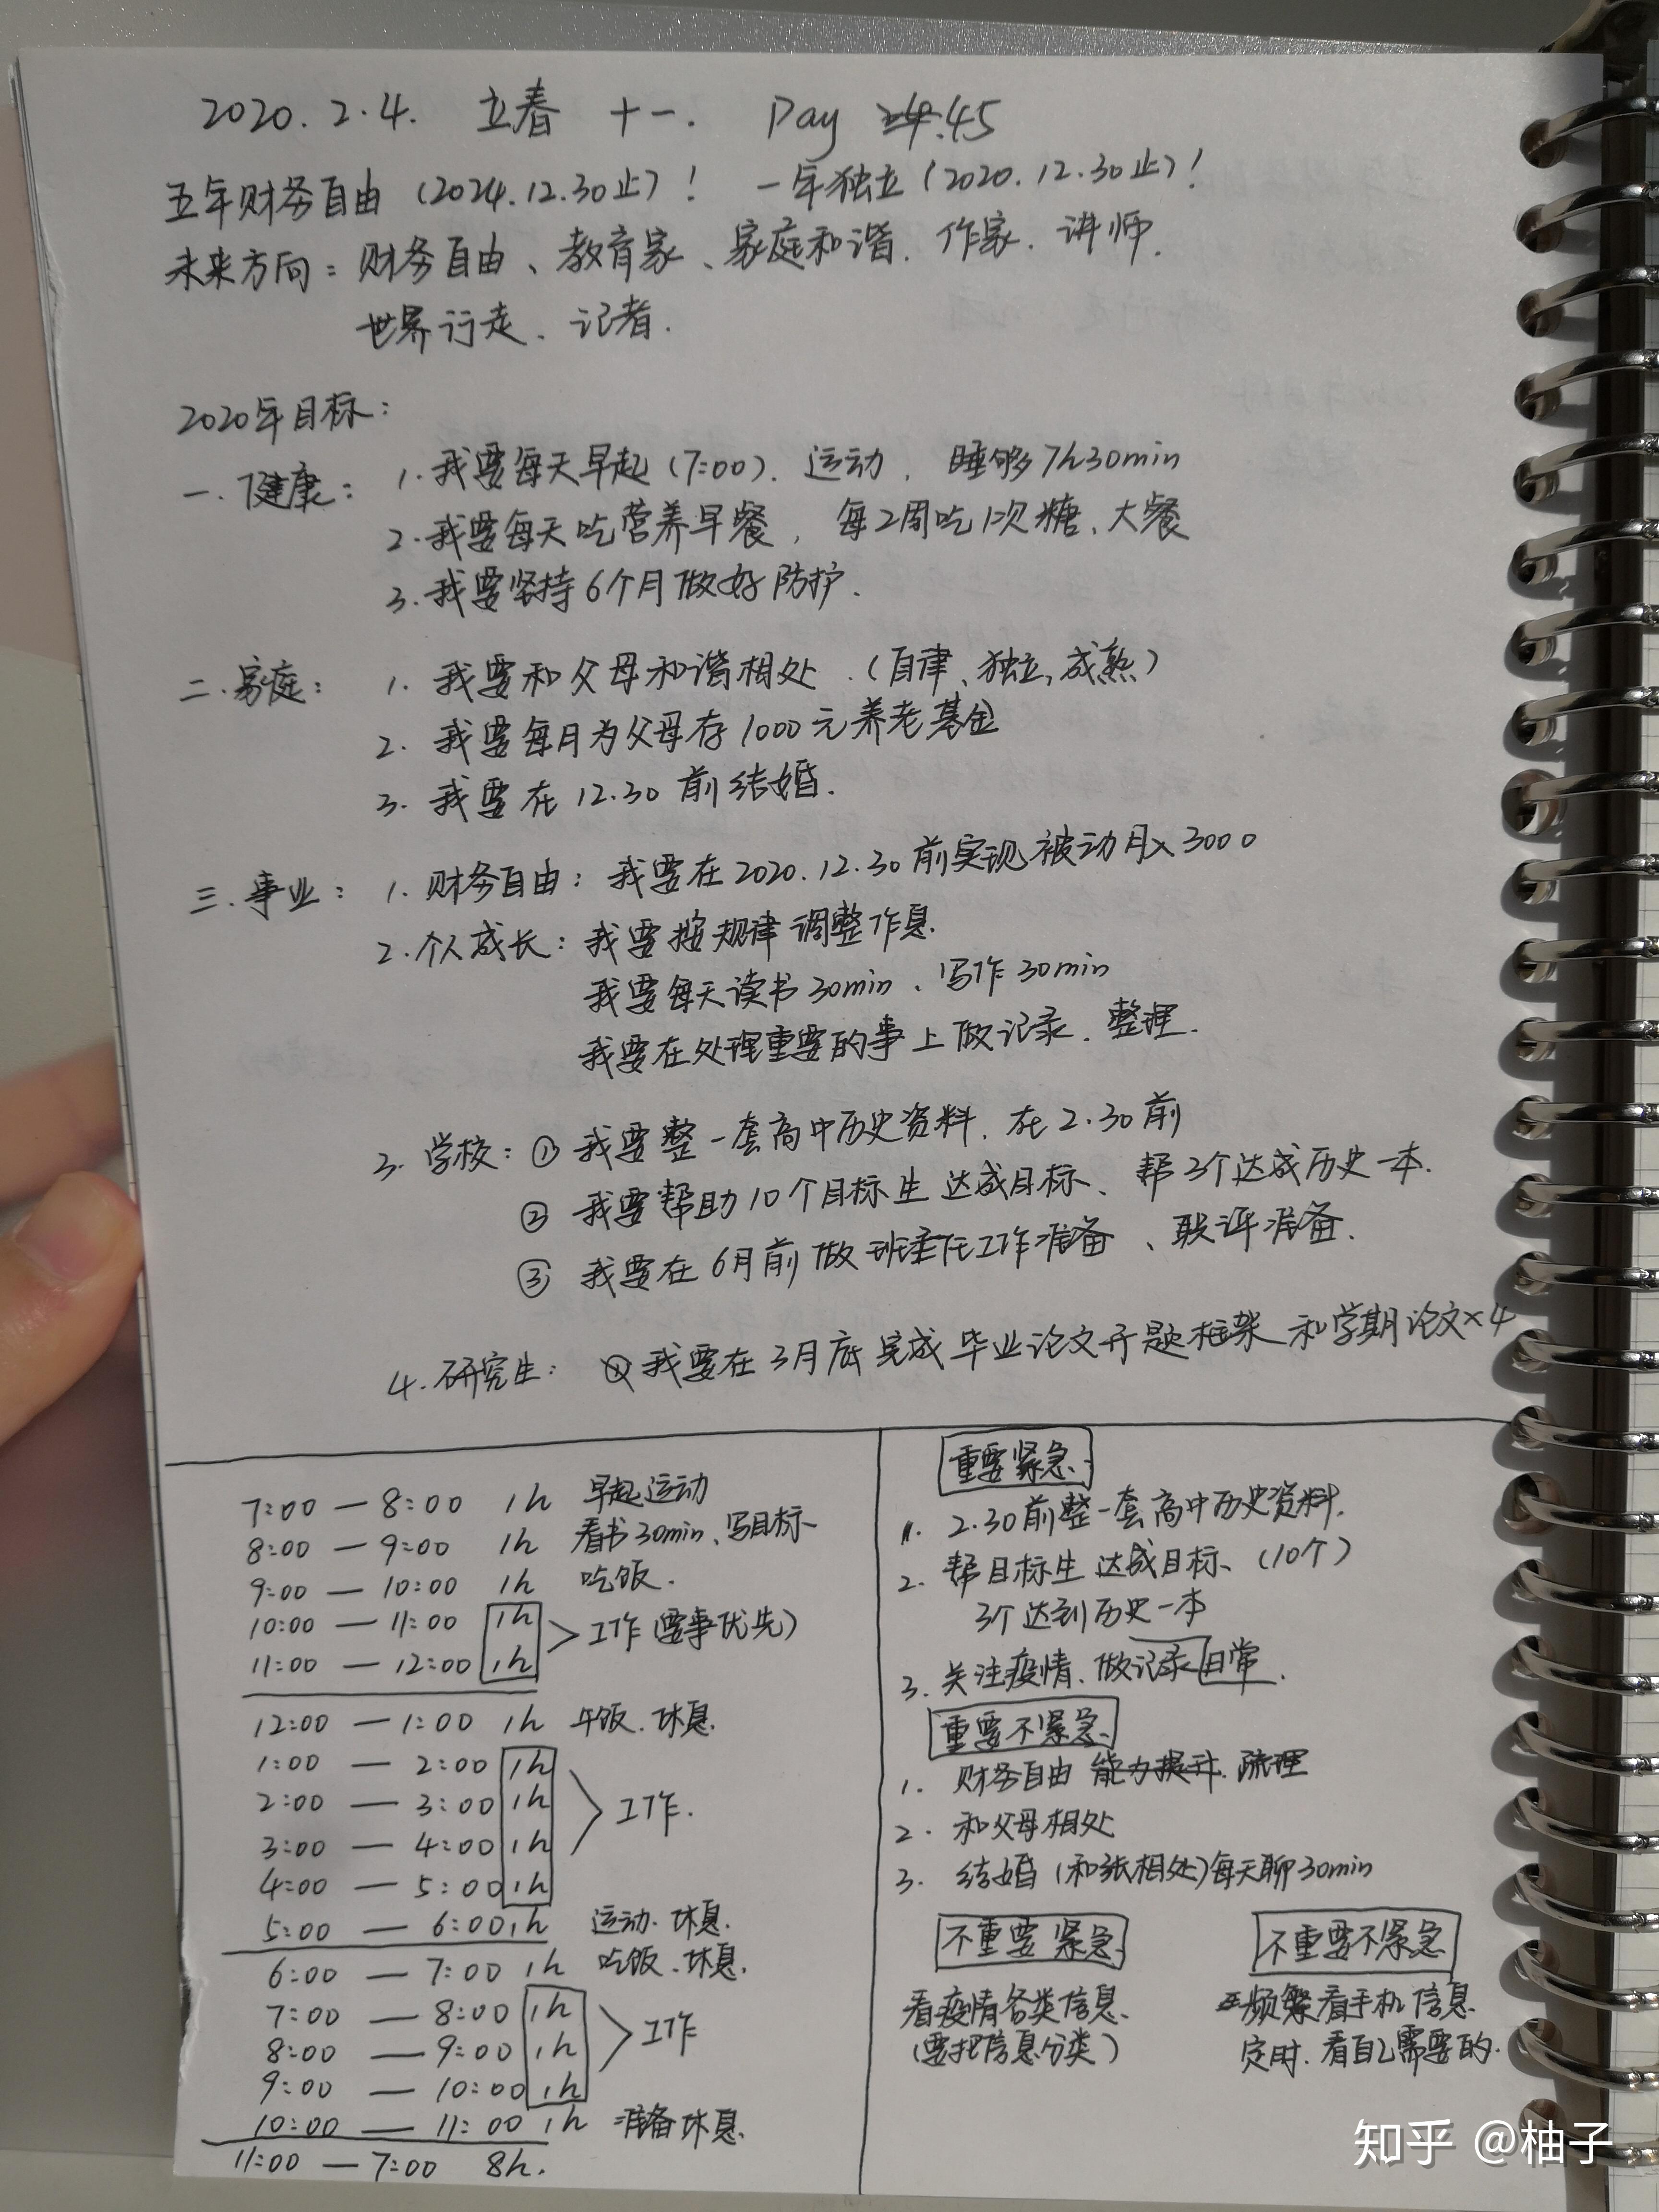 2020.2.4. 立春 十一. Day 45
五年财务自由（2024.12.30止）！ 一年独立（2020.12.30止）！
未来方向：财务自由、教育家、家庭和谐. 作家. 讲师.
世界行走. 记者.
2020年目标：
一.健康： 1.我要每天早起（7:00）. 运动, 睡够7h30min
2.我要每天吃营养早餐, 每2周吃1次糖、大餐
3.我要坚持6个月做好防护.
二.家庭： 1. 我要和父母和谐相处.（自律、独立,成熟）
2. 我要每月为父母存1000元养老基金
3. 我要在12.30前结婚.
三.事业： 1. 财务自由：我要在2020.12.30前实现被动月入3000
2.个人成长：我要按规律调整作息.
我要每天读书30min、写作30min
我要在处理重要的事上做记录. 整理.
3. 学校：① 我要整一套高中历史资料. 在2.30前
② 我要帮助10个目标生达成目标、帮3个达成历史一本.
③ 我要在6月前做班委任工作准备、联评准备.
4.研究生： 我要在3月底完成毕业论文开题框架和学期论文×4
7:00 — 8:00 1h 早起运动
8:00 — 9:00 1h 看书30min、写目标
9:00 — 10:00 1h 吃饭.
10:00 — 11:00 1h
11:00 — 12:00 1h
工作（要事优先）
12:00 — 1:00 1h 午饭. 休息.
1:00 — 2:00 1h
2:00 — 3:00 1h
3:00 — 4:00 1h
4:00 — 5:00 1h
工作.
5:00 — 6:00 1h 运动. 休息.
6:00 — 7:00 1h 吃饭. 休息.
7:00 — 8:00 1h
8:00 — 9:00 1h
9:00 — 10:00 1h
工作
10:00 — 11:00 1h 准备休息.
11:00 — 7:00 8h.
重要紧急.
1. 2.30前整一套高中历史资料.
2. 帮目标生达成目标、（10个）
3个达到历史一本
3. 关注疫情、做记录日常.
重要不紧急.
1. 财务自由 能力提升. 梳理
2. 和父母相处
3. 结婚（和张相处）每天聊30min
不重要紧急.
看疫情各类信息.
（要把信息分类）
不重要不紧急
频繁看手机信息.
定时. 看自己需要的.
知乎 @柚子